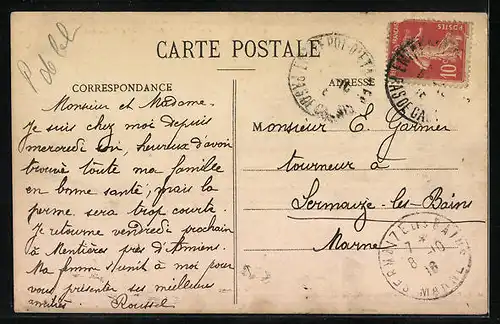 CARTE POSTALE
CORRESPONDANCE
ADRESSE
Monsieur et Madame.
Je suis chez moi depuis
mercredi soir, heureux d'avoir
trouvé toute ma famille
en bonne santé, mais la
perme. sera trop courte.
Je retourne vendredi prochain
à Mentières près d'Amiens.
Ma femme s'unit à moi pour
vous présenter ses meilleures
amitiés
Roussel
Monsieur E. Garnier
tourneur à
Sermaize-les-Bains
Marne
POSTES
10
SERMAIZE-LES-BAINS
7-10
16
MARNE
PAS DE CALAIS